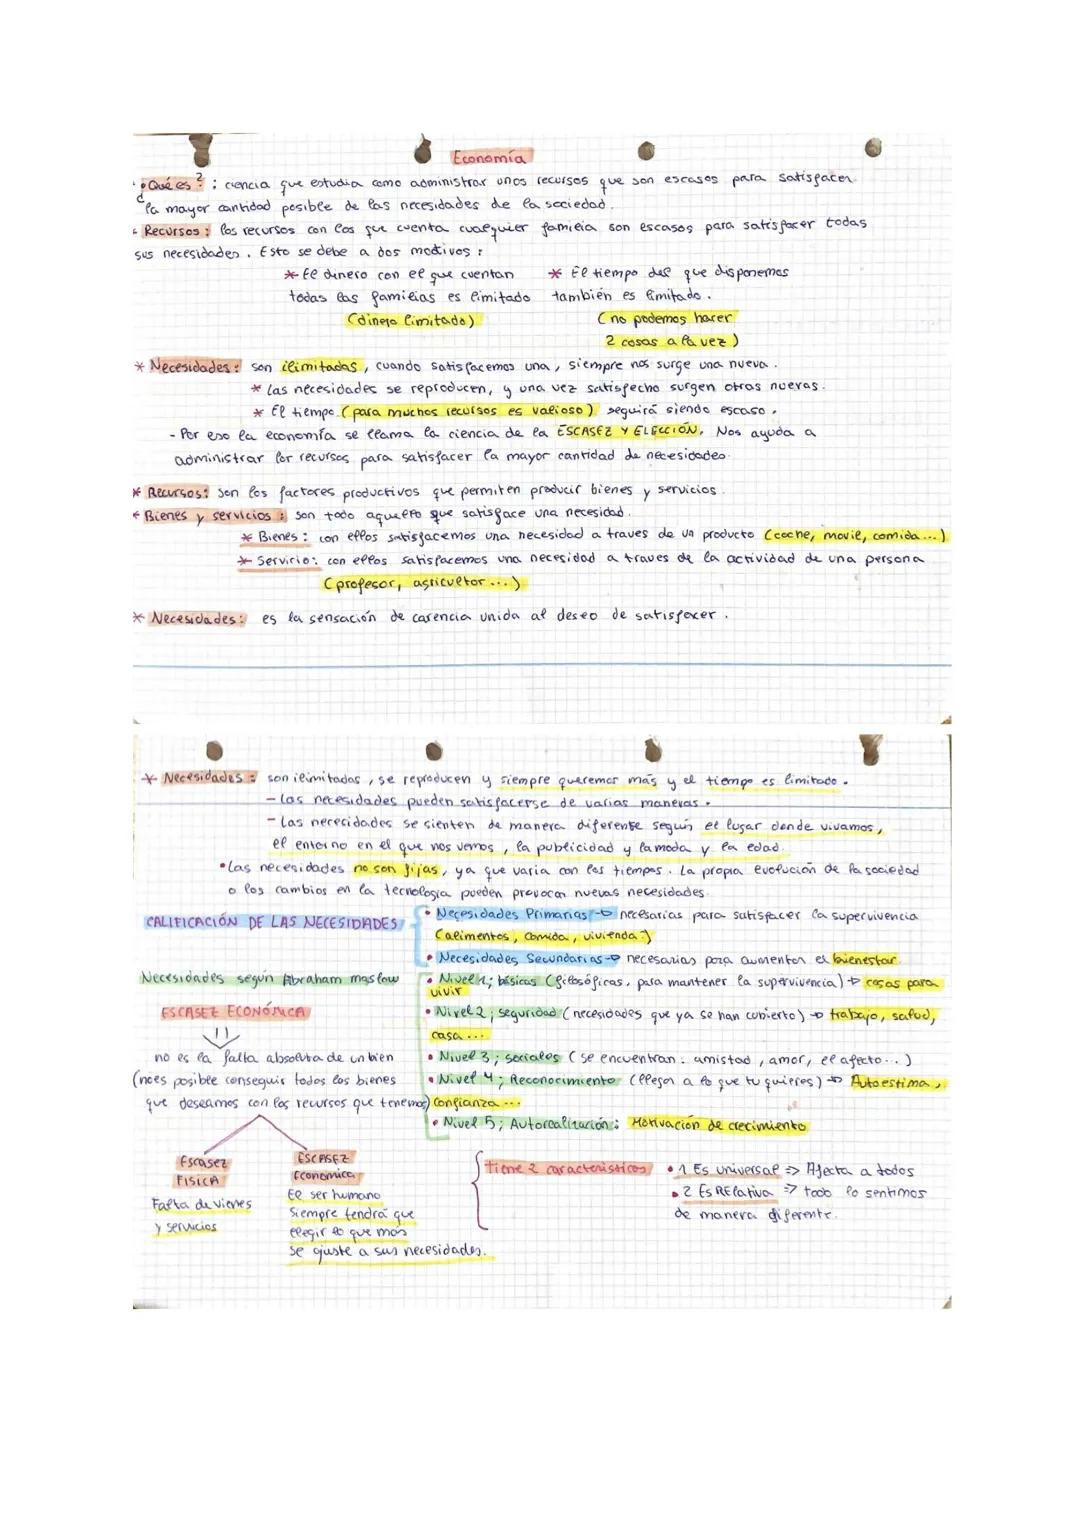 Economía
• ¿Qué es? : ciencia que estudia como administrar unos recursos que son escasos para satisfacer
la mayor cantidad posible de las necesidades de la sociedad.
- Recursos : los recursos con los que cuenta cualquier familia son escasos para satisfacer todas
sus necesidades. Esto se debe a dos motivos :
* El dinero con el que cuentan
todas las familias es limitado
(dinero limitado)
* El tiempo del que disponemos
también es limitado.
(no podemos hacer
2 cosas a la vez)
* Necesidades: son ilimitadas, cuando satisfacemos una, siempre nos surge una nueva.
* Las necesidades se reproducen, y una vez satisfecho surgen otras nuevas.
* El tiempo (para muchos recursos es valioso) seguirá siendo escaso.
- Por eso la economía se llama la ciencia de la ESCASEZ Y ELECCIÓN. Nos ayuda a
administrar los recursos para satisfacer la mayor cantidad de necesidades.
* Recursos: son los factores productivos que permiten producir bienes y servicios.
* Bienes y servicios : son todo aquello que satisface una necesidad.
* Bienes : con ellos satisfacemos una necesidad a traves de un producto (coche, movil, comida...)
* Servicio: con ellos satisfacemos una necesidad a traves de la actividad de una persona
(profesor, agricultor...)
* Necesidades: es la sensación de carencia unida al deseo de satisfacer.
* Necesidades : son ilimitadas, se reproducen y siempre queremos más y el tiempo es limitado.
- Las necesidades pueden satisfacerse de varias maneras.
- Las necesidades se sienten de manera diferente según el lugar donde vivamos,
el entorno en el que nos vemos, la publicidad y la moda y la edad.
• Las necesidades no son fijas, ya que varia con los tiempos. La propia evolución de la sociedad
o los cambios en la tecnología pueden provocar nuevas necesidades.
CALIFICACIÓN DE LAS NECESIDADES
• Necesidades Primarias → necesarias para satisfacer la supervivencia
(alimentos, comida, vivienda:)
• Necesidades Secundarias → necesarias para aumentar el bienestar.
Necesidades según Abraham maslow
• Nivel 1; básicas (filosóficas, para mantener la supervivencia) → cosas para
vivir
• Nivel 2; seguridad (necesidades que ya se han cubierto) → trabajo, salud,
casa ...
• Nivel 3; sociales (se encuentran: amistad, amor, el afecto...)
• Nivel 4; Reconocimiento (llegar a lo que tu quieres) → Autoestima,
confianza ...
• Nivel 5; Autorealización: Motivación de crecimiento
ESCASEZ ECONÓMICA
no es la falta absoluta de un bien
(no es posible conseguir todos los bienes
que deseamos con los recursos que tenemos)
Escasez
FISICA
Falta de vienes
y servicios
ESCASEZ
Economica
El ser humano
siempre tendrá que
elegir lo que mas
se ajuste a sus necesidades.
Tiene 2 caracteristicas
• 1 Es universal => Afecta a todos
• 2 Es RElativa => todo lo sentimos
de manera diferente.